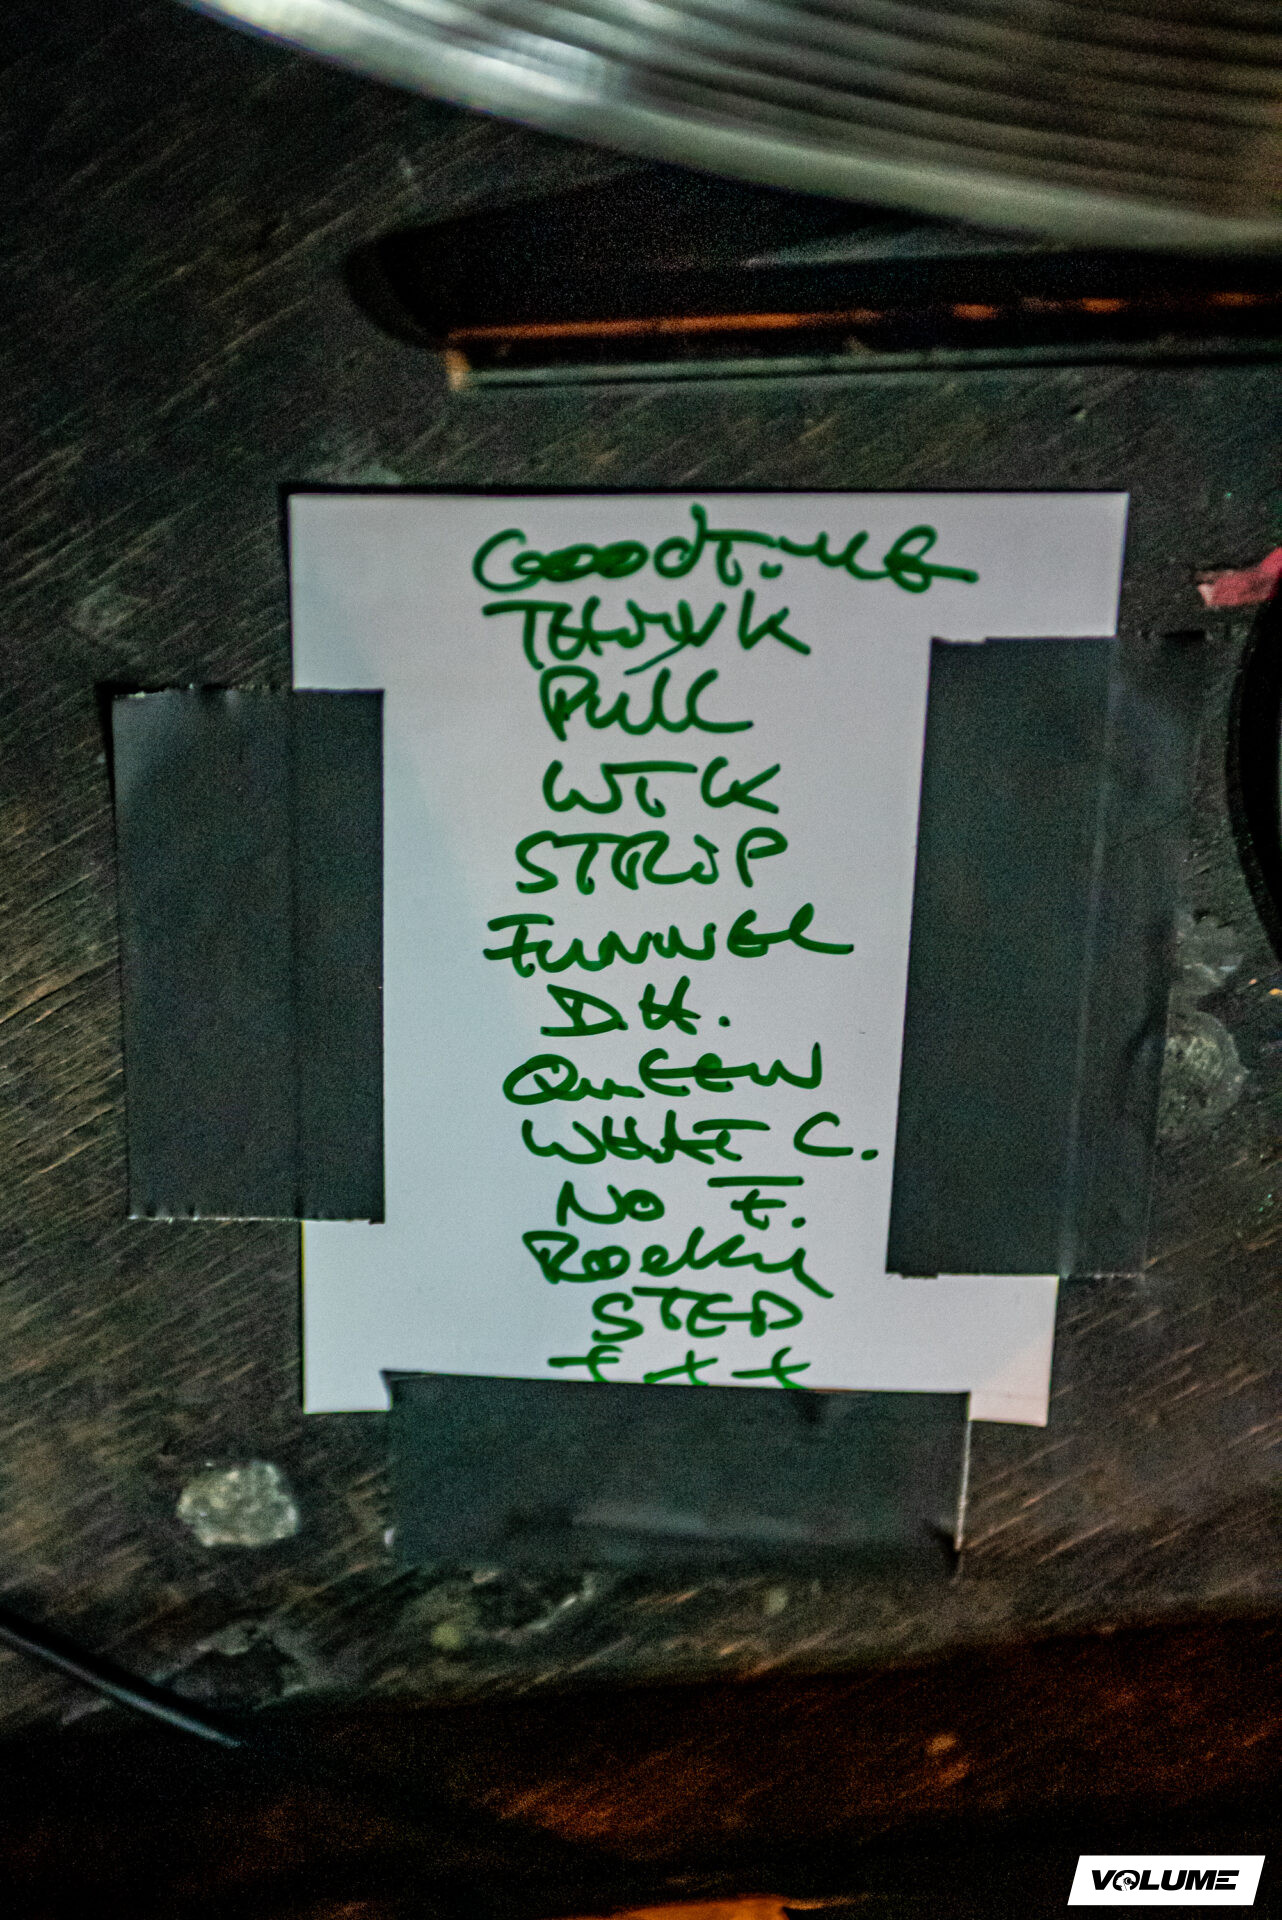 GOODTIME
THINK
PULL
WTK
STRIP
FUNNEL
D.H.
QUEEN
WHAT C.
NO T.
ROCKY
STEP
VOLUME